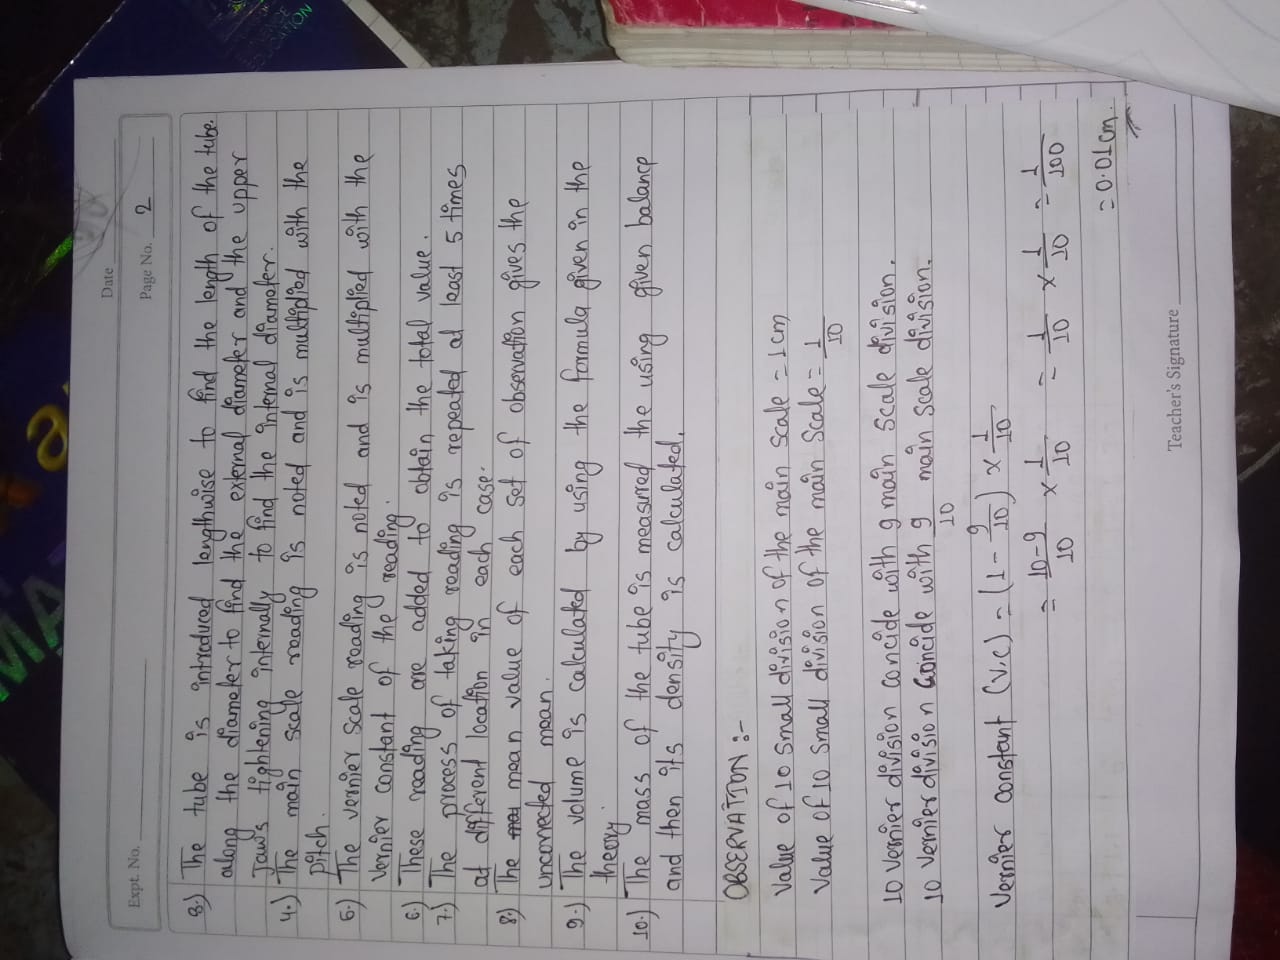 Date
Expt. No.
Page No. 2
3.) The tube is introduced lengthwise to find the length of the tube.
along the diameter to find the external diameter and the upper
Jaws tightening internally to find the internal diameter.
4.) The main scale reading is noted and is multiplied with the
pitch.
5.) The vernier scale reading is noted and is multiplied with the
vernier constant of the reading.
6.) These reading are added to obtain the total value.
7.) The process of taking reading is repeated at least 5 times
at different location in each case.
8.) The mean value of each set of observation gives the
uncorrected mean.
9.) The volume is calculated by using the formula given in the
theory.
10.) The mass of the tube is measured the using given balance
and then its density is calculated.
OBSERVATION :-
Value of 10 small division of the main scale = 1 cm
Value of 10 small division of the main scale = 1/10
10 vernier division concide with 9 main scale division.
10 vernier division concide with 9/10 main scale division.
Vernier constant (V.C) = (1 - 9/10) × 1/10
= 10-9/10 × 1/10 = 1/10 × 1/10 = 1/100
= 0.01 cm.
Teacher's Signature
MA
EDUCATION